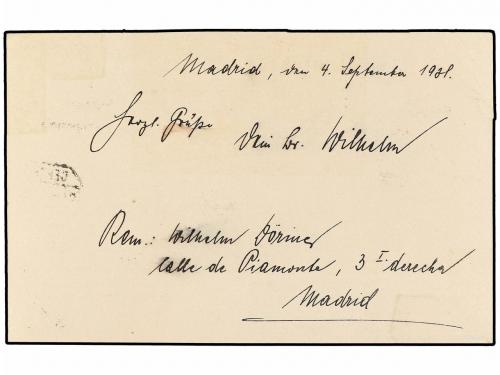 Madrid, den 4. September 1931.
Herzl. Grüße
Dein Br. Wilhelm
Rem.: Wilhelm Döriner
Calle de Piamonte, 3 I. derecha
Madrid